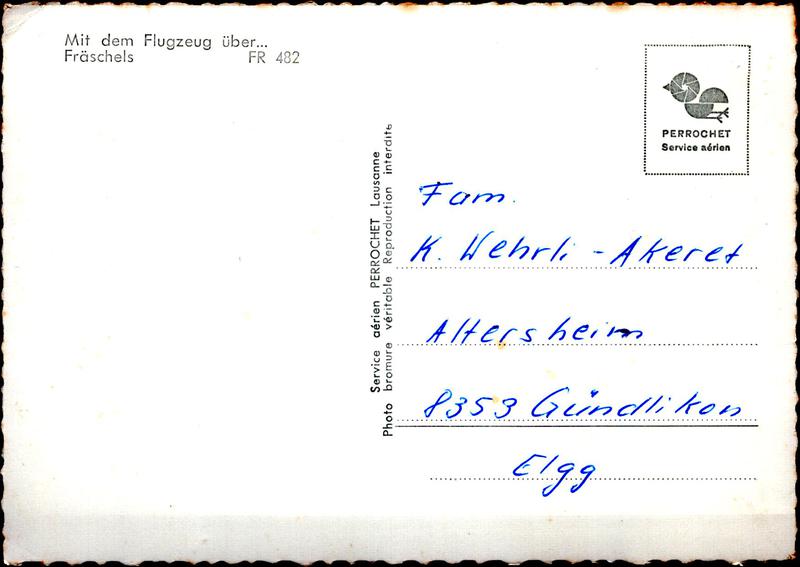 Mit dem Flugzeug über...
Fräschels FR 482
PERROCHET
Service aérien
Service aérien PERROCHET Lausanne
Photo bromure véritable Reproduction interdite
Fam.
K. Wehrli-Akeret
Altersheim
8353 Gündlikon
Elgg